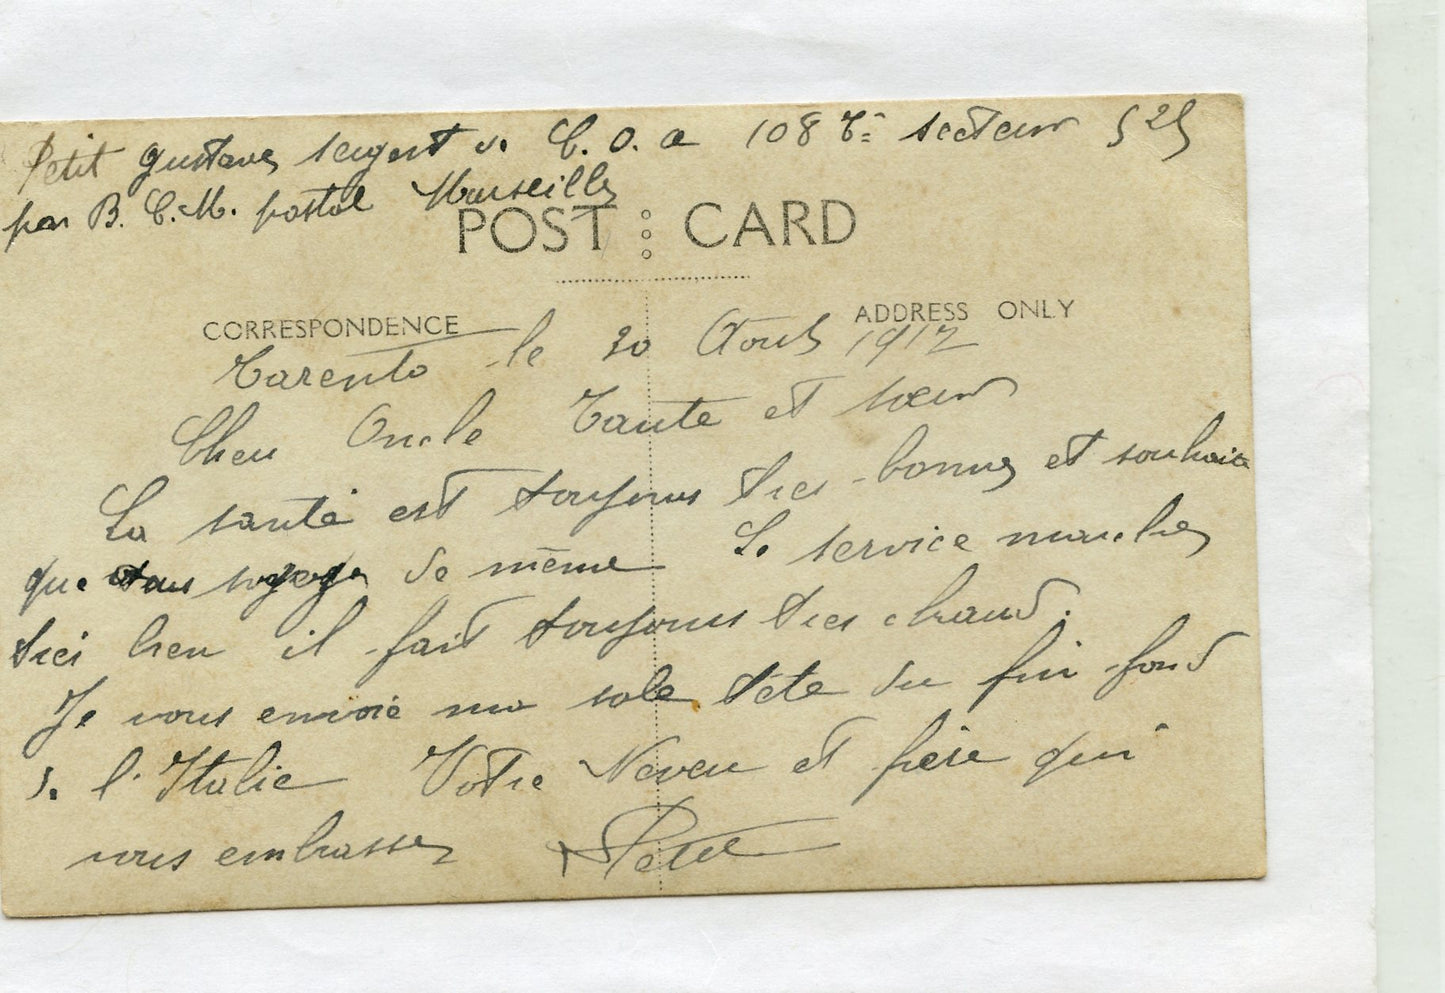 Petit Gustave sergent d. C. O. a 108 Tè secteur 525
par B. C. M. postal Marseille
POST CARD
CORRESPONDENCE ADDRESS ONLY
Tarento le 20 Aout 1917
Cher Oncle Tante et soeur
La santé est toujours tres bonne et souhaite
que vous soyez de même Le service marche
tres bien il fait toujours tres chaud.
Je vous envoie ma sale tète du fin fond
d. l'Italie Votre Neveu et frère qui
vous embrasse Petit